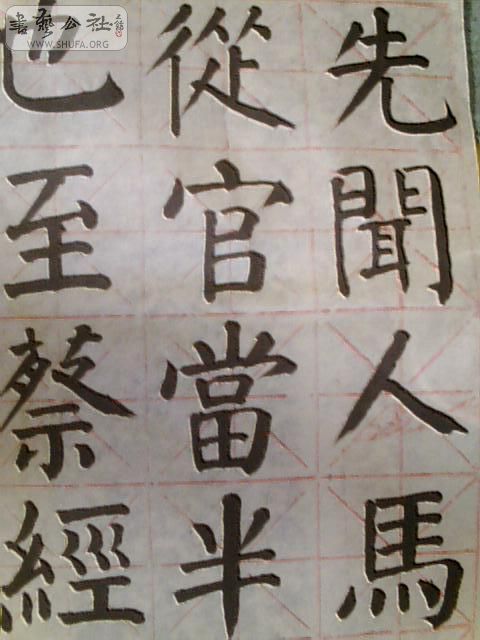 先聞人馬
從官當半
也至蔡經
書藝公社
WWW.SHUFA.ORG